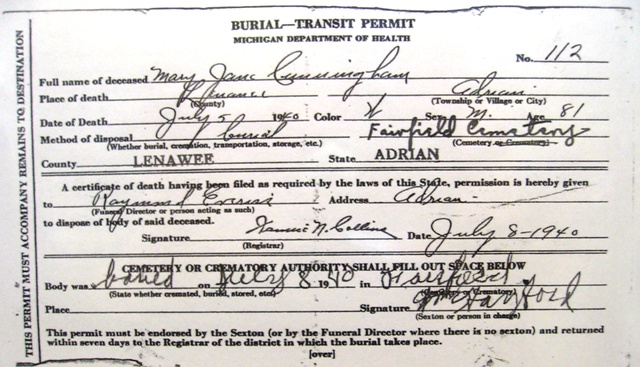 BURIAL—TRANSIT PERMIT
MICHIGAN DEPARTMENT OF HEALTH
No. 112
Full name of deceased Mary Jane Cunningham
Place of death Lenawee Adrian
(County) (Township or Village or City)
Date of Death July 5 1940 Color W Sex M. Age 81
Method of disposal burial Fairfield Cemetery
(Whether burial, cremation, transportation, storage, etc.) (Cemetery or Crematory)
County LENAWEE State ADRIAN
A certificate of death having been filed as required by the laws of this State, permission is hereby given
to Raymond Address Adrian
(Funeral Director or person acting as such)
to dispose of body of said deceased.
Signature N. Collins Date July 8-1940
(Registrar)
CEMETERY OR CREMATORY AUTHORITY SHALL FILL OUT SPACE BELOW
Body was buried on July 8 1940 in Fairfield
(State whether cremated, buried, stored, etc.) (Cemetery or Crematory)
Place Signature
(Sexton or person in charge)
This permit must be endorsed by the Sexton (or by the Funeral Director where there is no sexton) and returned
within seven days to the Registrar of the district in which the burial takes place.
[over]
THIS PERMIT MUST ACCOMPANY REMAINS TO DESTINATION